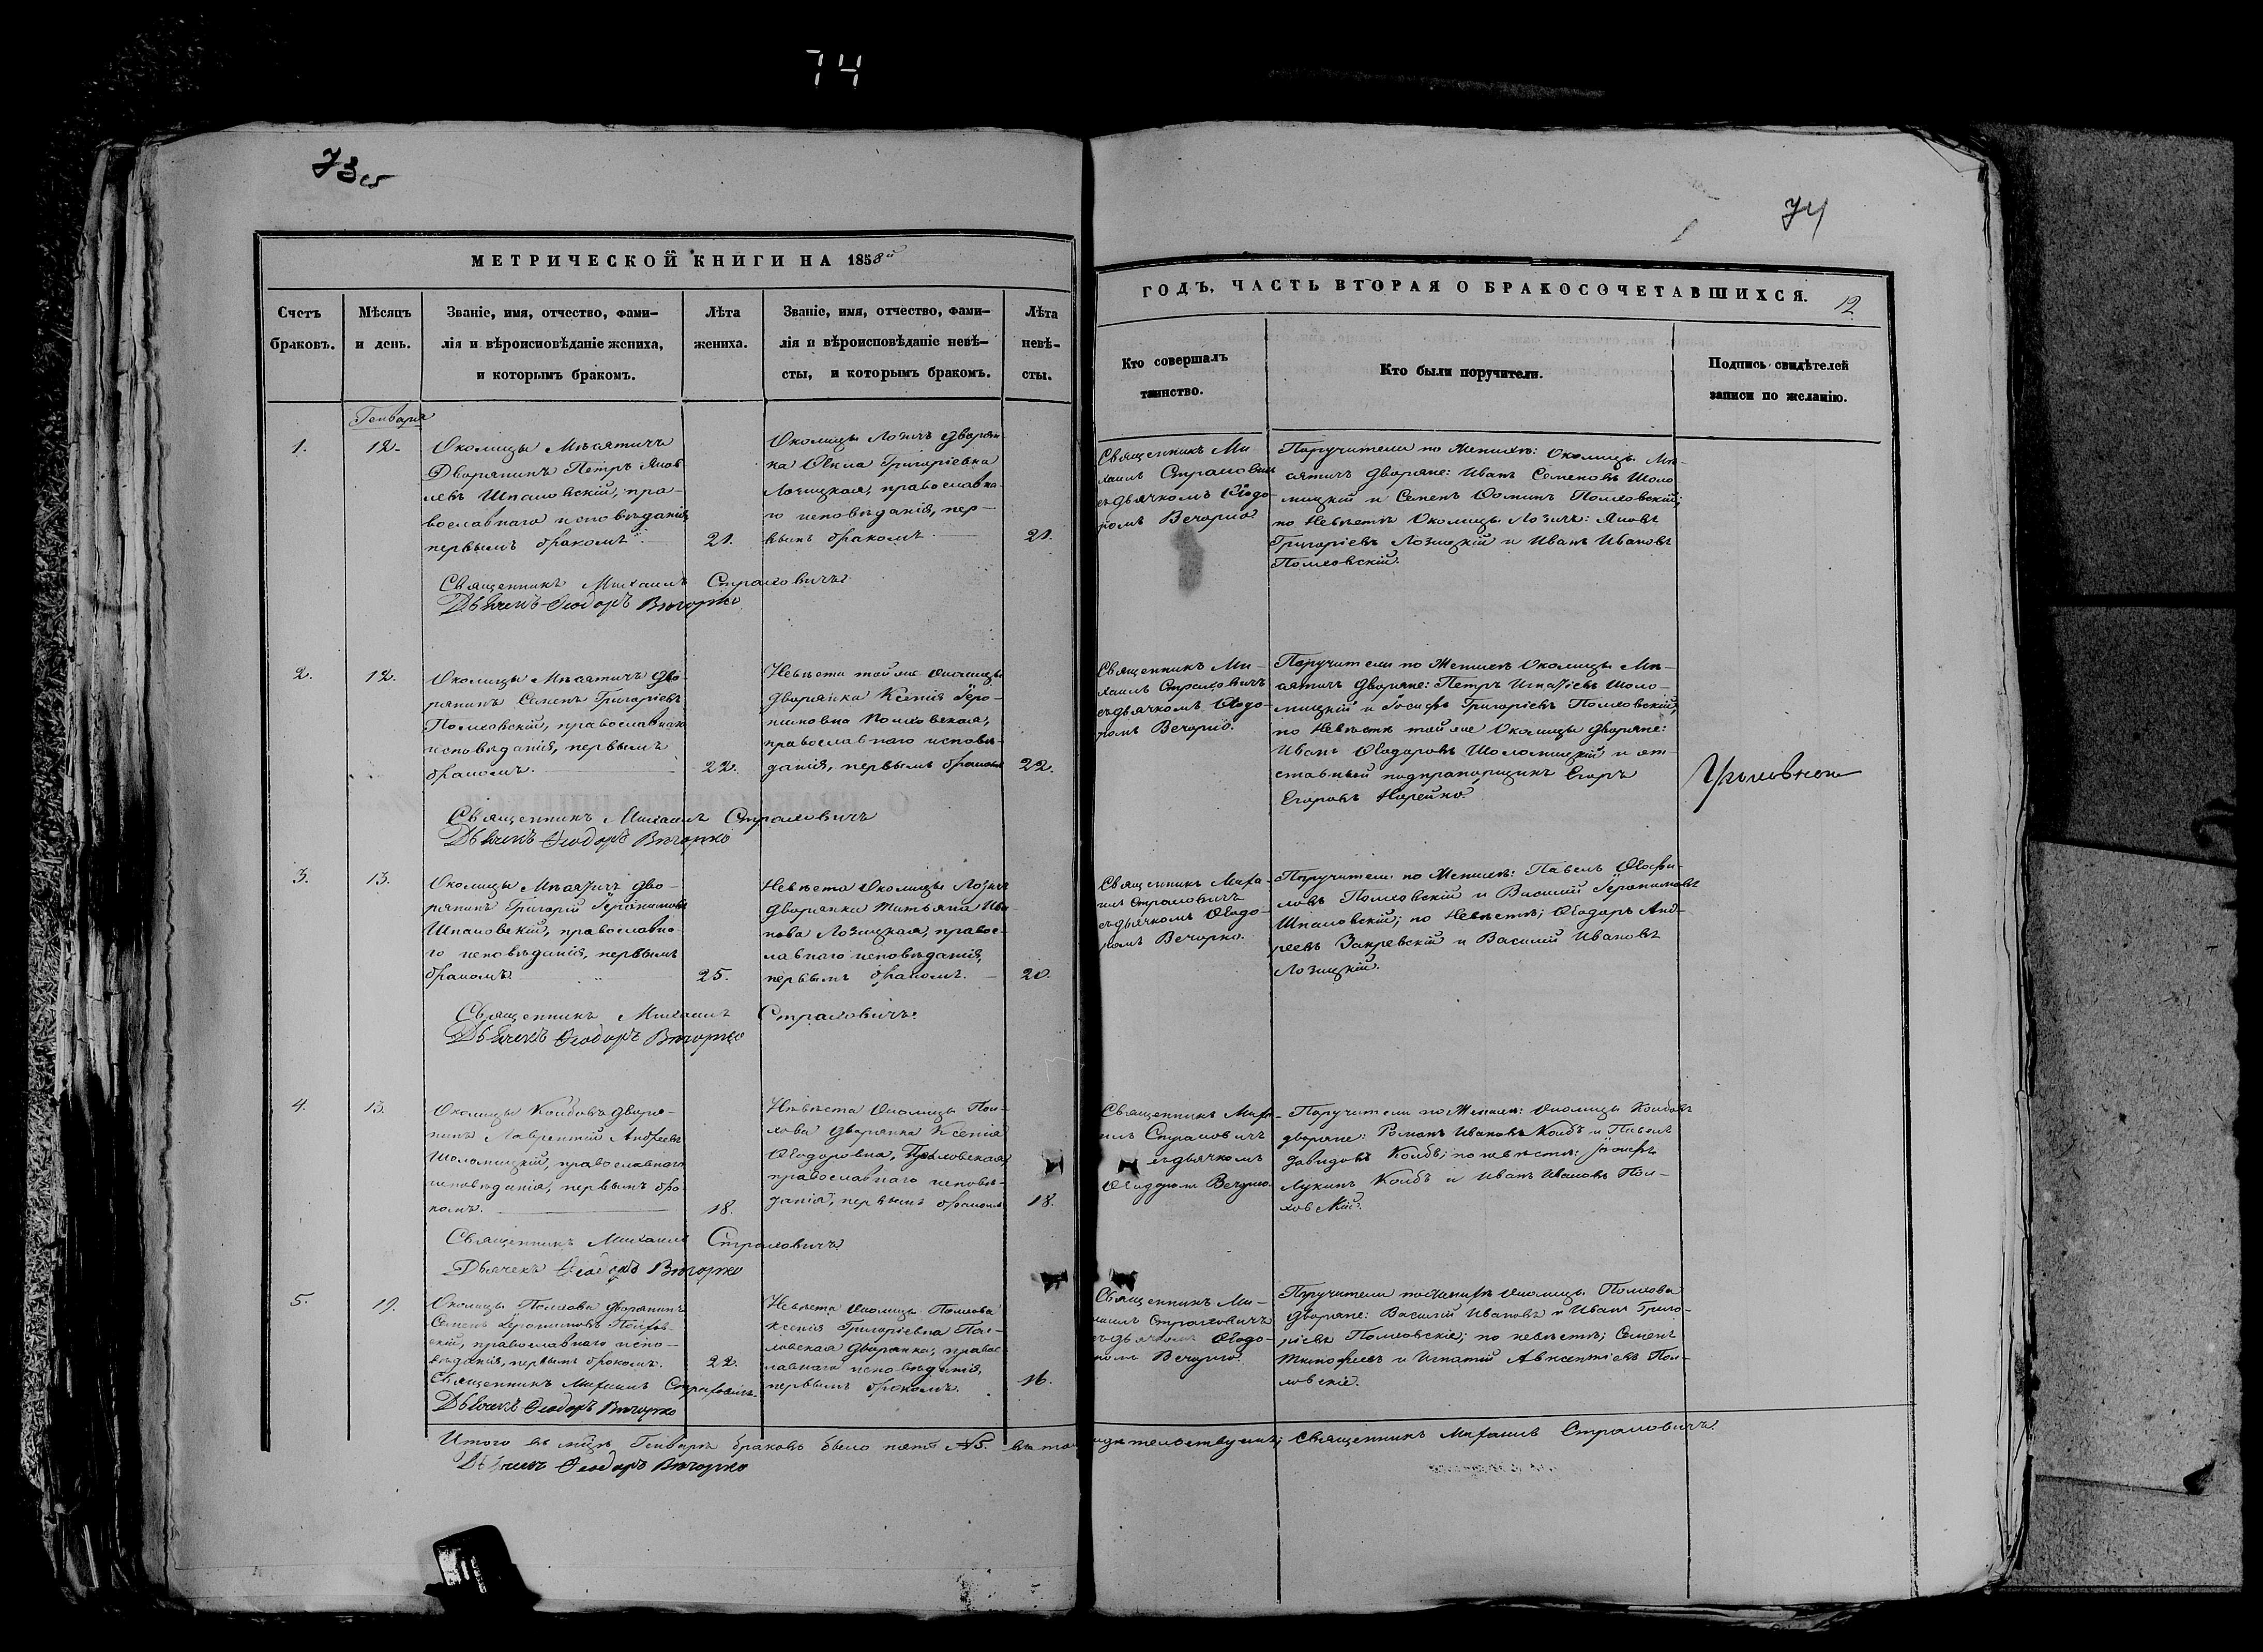 74
73об
74
МЕТРИЧЕСКОЙ КНИГИ НА 1858й
Счетъ браковъ.
Мѣсяцъ и день.
Званіе, имя, отчество, фами-
лія и вѣроисповѣданіе жениха,
и которымъ бракомъ.
Лѣта
жениха.
Званіе, имя, отчество, фами-
лія и вѣроисповѣданіе невѣ-
сты, и которымъ бракомъ.
Лѣта
невѣ-
сты.
Генваря
1.
12.
Околицы Мясятичъ
Дворянинъ Петръ Яков
левъ Шпаковскій, пра-
вославнаго исповѣданія
первымъ бракомъ.
21.
Околицы Лозичъ дворян-
ка Ѳекла Григоріевна
Лозицкая, православна-
го исповѣданія, пер-
вымъ бракомъ.
21.
Священникъ Михаилъ Страховичъ
Дьячекъ Ѳеодоръ Вечорко
2.
12.
Околицы Мясятичъ дво-
рянинъ Семенъ Григоріевъ
Полховскій, православнаго
исповѣданія, первымъ
бракомъ.
22.
Невѣста той же околицы
дворянка Ксенія Іеро-
нимовна Полховская,
православнаго исповѣ-
данія, первымъ бракомъ
22.
Священникъ Михаилъ Страховичъ
Дьячекъ Ѳеодоръ Вечорко
3.
13.
Околицы Мясятичъ дво-
рянинъ Григорій Іеронимовъ
Шпаковскій, православна-
го исповѣданія, первымъ
бракомъ.
25.
Невѣста Околицы Лозичъ
дворянка Татьяна Ива-
нова Лозицкая, правос-
лавнаго исповѣданія,
первымъ бракомъ.
20.
Священникъ Михаилъ Страховичъ.
Дьячекъ Ѳеодоръ Вечорко
4.
13.
Околицы Колбовъ дворя-
нинъ Лаврентій Андреевъ
Шоломицкій, православнаго
исповѣданія, первымъ бра-
комъ.
18.
Невѣста Околицы Пол-
хова дворянка Ксенія
Ѳеодоровна, Полховская,
православнаго исповѣ-
данія, первымъ бракомъ
18.
Священникъ Михаилъ Страховичъ
Дьячекъ Ѳеодоръ Вечорко
5.
19.
Околицы Полхова дворянинъ
Семенъ Іеронимовъ Полхов-
скій, православнаго испо-
вѣданія, первымъ бракомъ.
22.
Невѣста Околицы Полхова
Ксенія Григоріевна Пол-
ховская дворянка, правос-
лавнаго исповѣданія,
первымъ бракомъ.
16.
Священникъ Михаилъ Страховичъ.
Дьячекъ Ѳеодоръ Вечорко
Итого въ мцѣ Генварѣ браковъ было пять №5.
Дьячекъ Ѳеодоръ Вечорко
ГОДЪ, ЧАСТЬ ВТОРАЯ О БРАКОСОЧЕТАВШИХСЯ.
12
Кто совершалъ
таинство.
Кто были поручители.
Подпись свидѣтелей
записи по желанію.
Священникъ Ми-
хаилъ Страховичъ
съ дьячкомъ Ѳеодо-
ромъ Вечорко
Поручители по Женихѣ: Околицы Мя-
сятичъ дворяне: Иванъ Семеновъ Шоло-
мицкій и Семенъ Ѳоминъ Полховскій;
по Невѣстѣ Околицы Лозичъ: Яковъ
Григоріевъ Лозицкій и Иванъ Ивановъ
Полховскій.
Священникъ Ми-
хаилъ Страховичъ
съ дьячкомъ Ѳеодо-
ромъ Вечорко.
Поручители по Женихѣ Околицы Мя-
сятичъ дворяне: Петръ Игнатіевъ Шоло-
мицкій и Іосифъ Григоріевъ Полховскій;
по Невѣстѣ той же Околицы дворяне:
Иванъ Ѳеодоровъ Шоломицкій и от-
ставный подпрапорщикъ Егоръ
Егоровъ Нарейко.
Священникъ Миха-
илъ Страховичъ
съ дьячкомъ Ѳеодо-
ромъ Вечорко.
Поручители по Женихѣ: Павелъ Ѳеофи-
ловъ Полховскій и Василій Іеронимовъ
Шпаковскій; по Невѣстѣ; Ѳеодоръ Анд-
реевъ Закревскій и Василій Ивановъ
Лозицкій.
Священникъ Миха-
илъ Страховичъ
съ дьячкомъ
Ѳеодоромъ Вечорко.
Поручители по Женихѣ: Околицы Колбовъ
дворяне: Романъ Ивановъ Колбъ и Павелъ
Давидовъ Колбъ; по невѣстѣ: Іосифъ
Лукинъ Колбъ и Иванъ Ивановъ Пол-
ховскій.
Священникъ Ми-
хаилъ Страховичъ
съ дьячкомъ Ѳеодо-
ромъ Вечорко.
Поручители по Женихѣ Околицы Полхова
дворяне: Василій Ивановъ и Иванъ Григо-
ріевъ Полховскіе; по невѣстѣ; Семенъ
Тимофеевъ и Игнатій Авксентіевъ Пол-
ховскіе.
Священникъ Михаилъ Страховичъ.